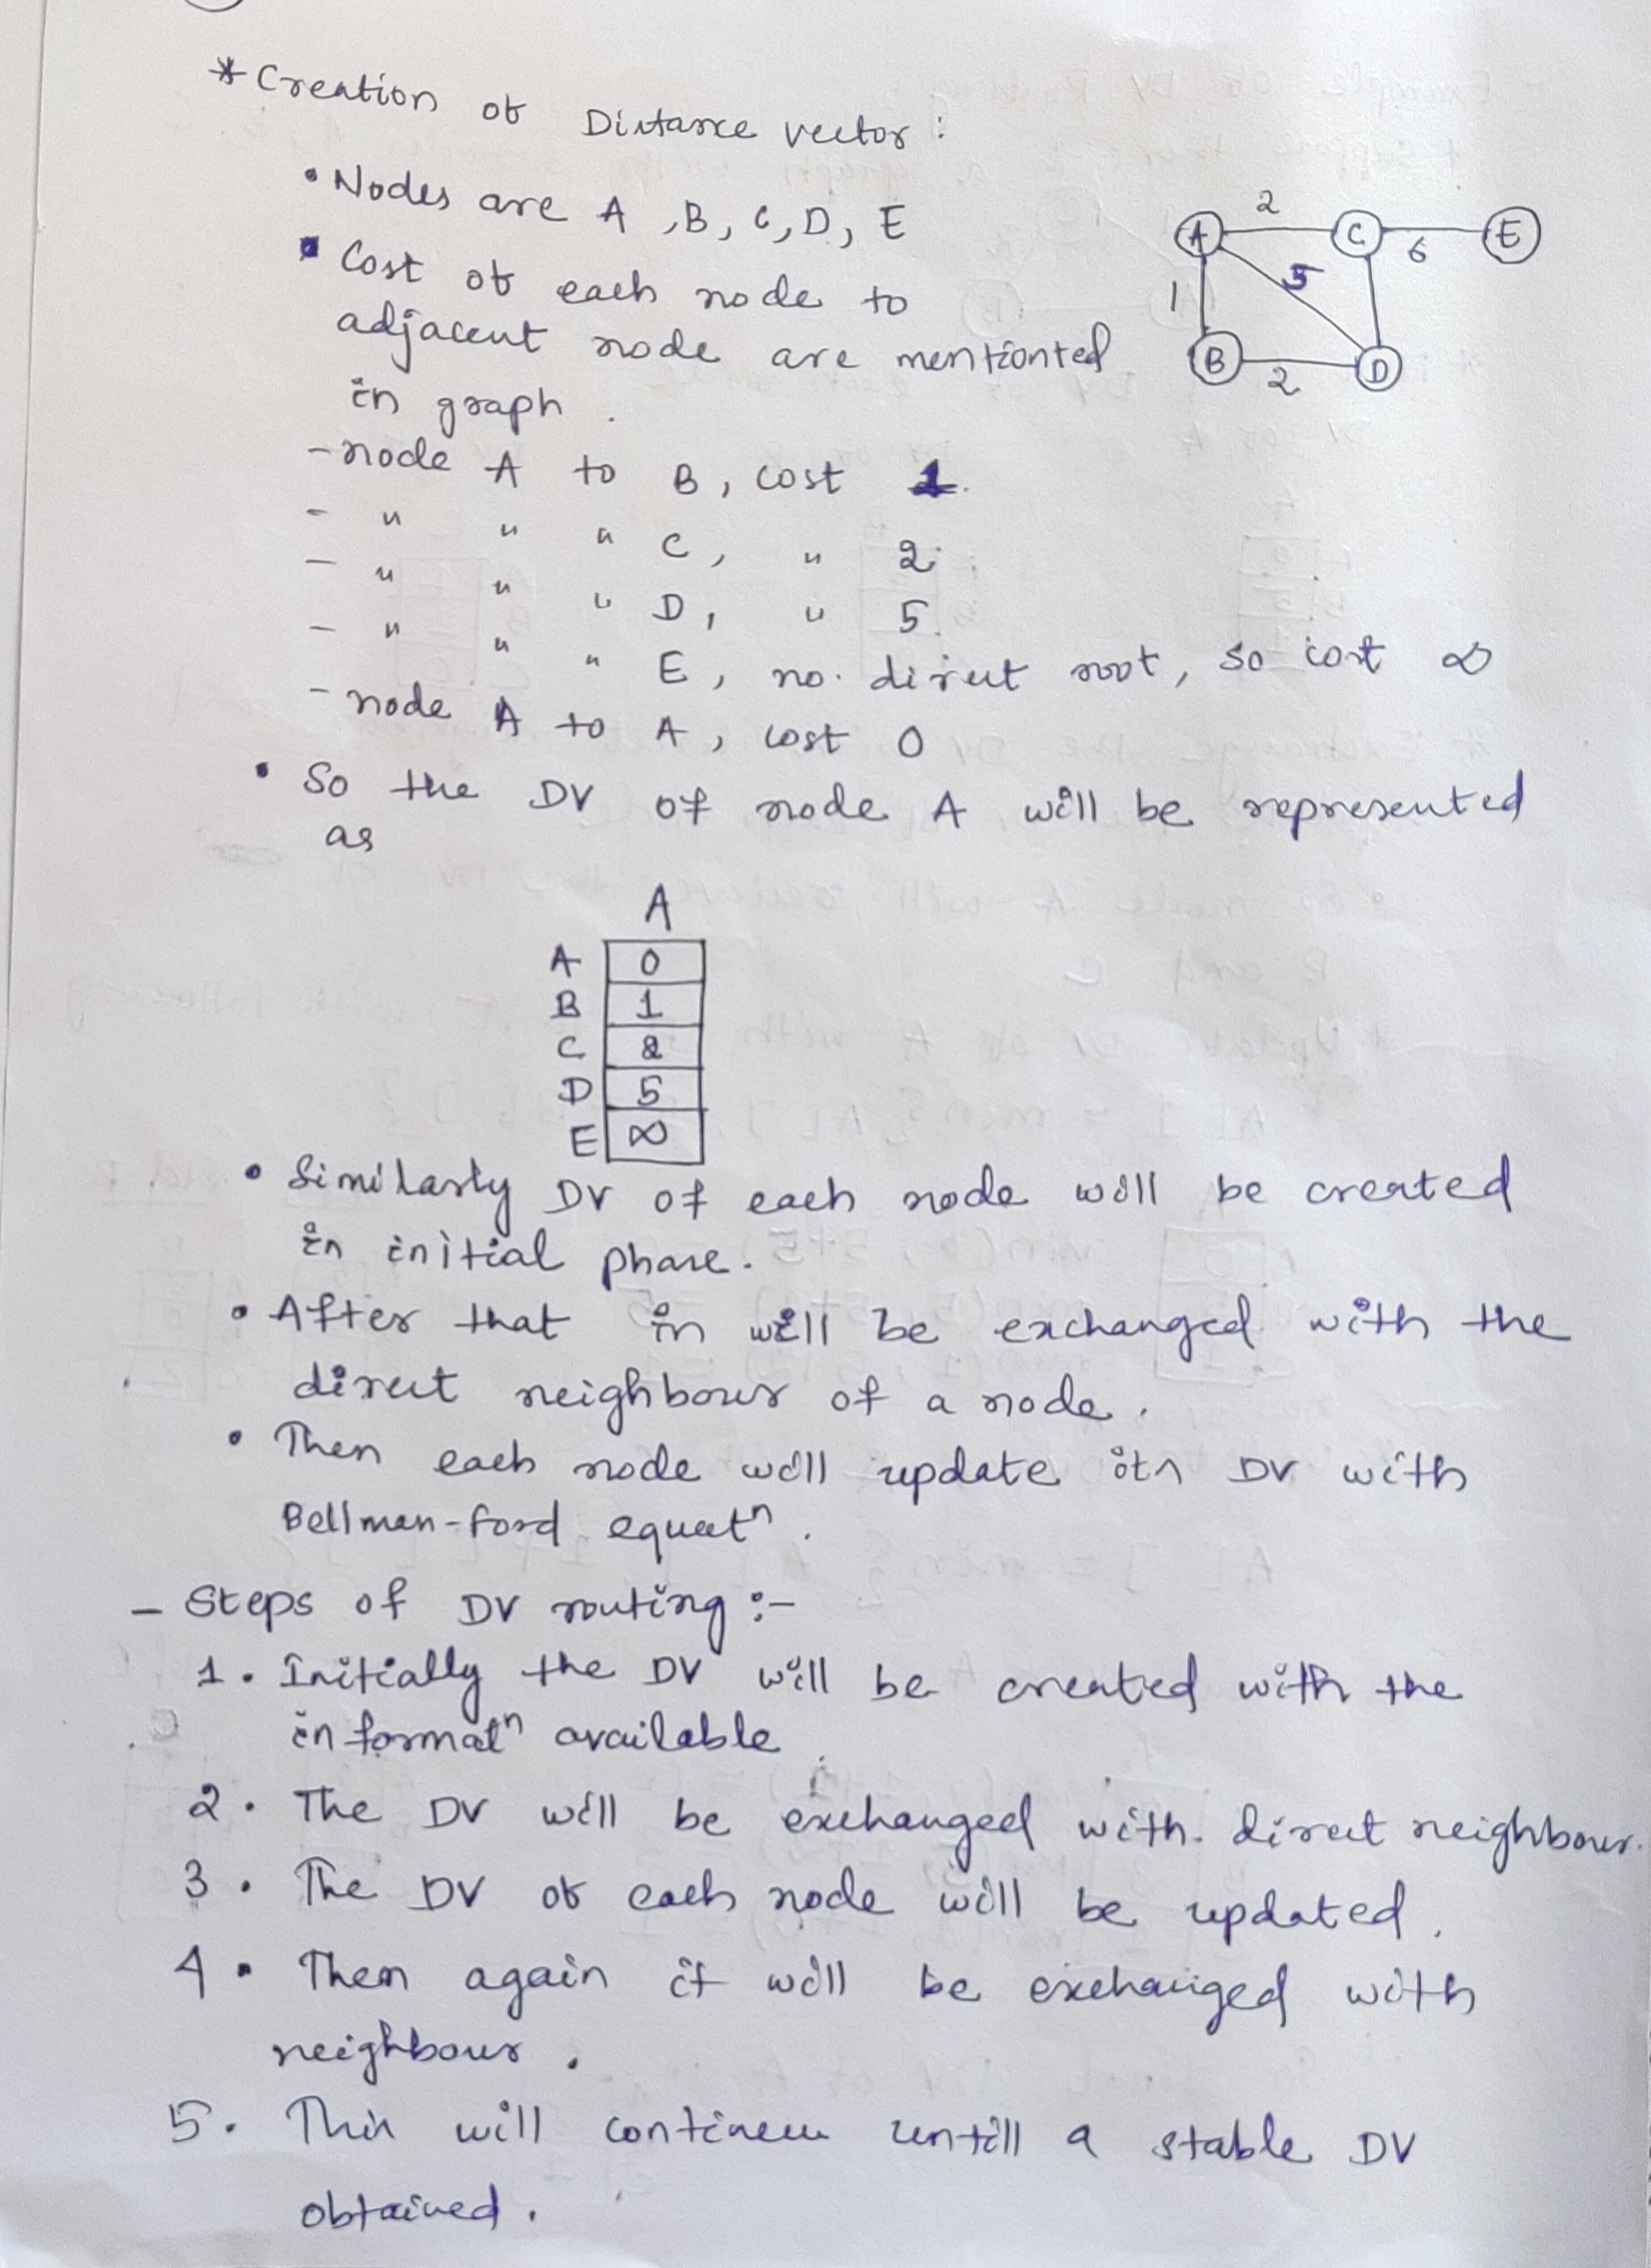 * Creation of Distance vector :
• Nodes are A, B, C, D, E
• Cost of each node to
adjacent node are mentionted
in graph .
A 2 C 6 E
1 5
B 2 D
- node A to B, cost 1.
- " " " C, " 2.
- " " " D, " 5.
- " " " E, no. direct root, so cost ∞
- node A to A, cost 0
• So the DV of node A will be represented
as
A
A 0
B 1
C 2
D 5
E ∞
• Similarly DV of each node will be created
in initial phase.
• After that in will be exchanged with the
direct neighbour of a node.
• Then each node will update its DV with
Bellman-ford equatⁿ .
- Steps of DV routing :-
1. Initially the DV will be created with the
informatⁿ available
2. The DV will be exchanged with. direct neighbour.
3. The DV of each node will be updated.
4. Then again it will be exchanged with
neighbour .
5. This will continew untill a stable DV
obtained .